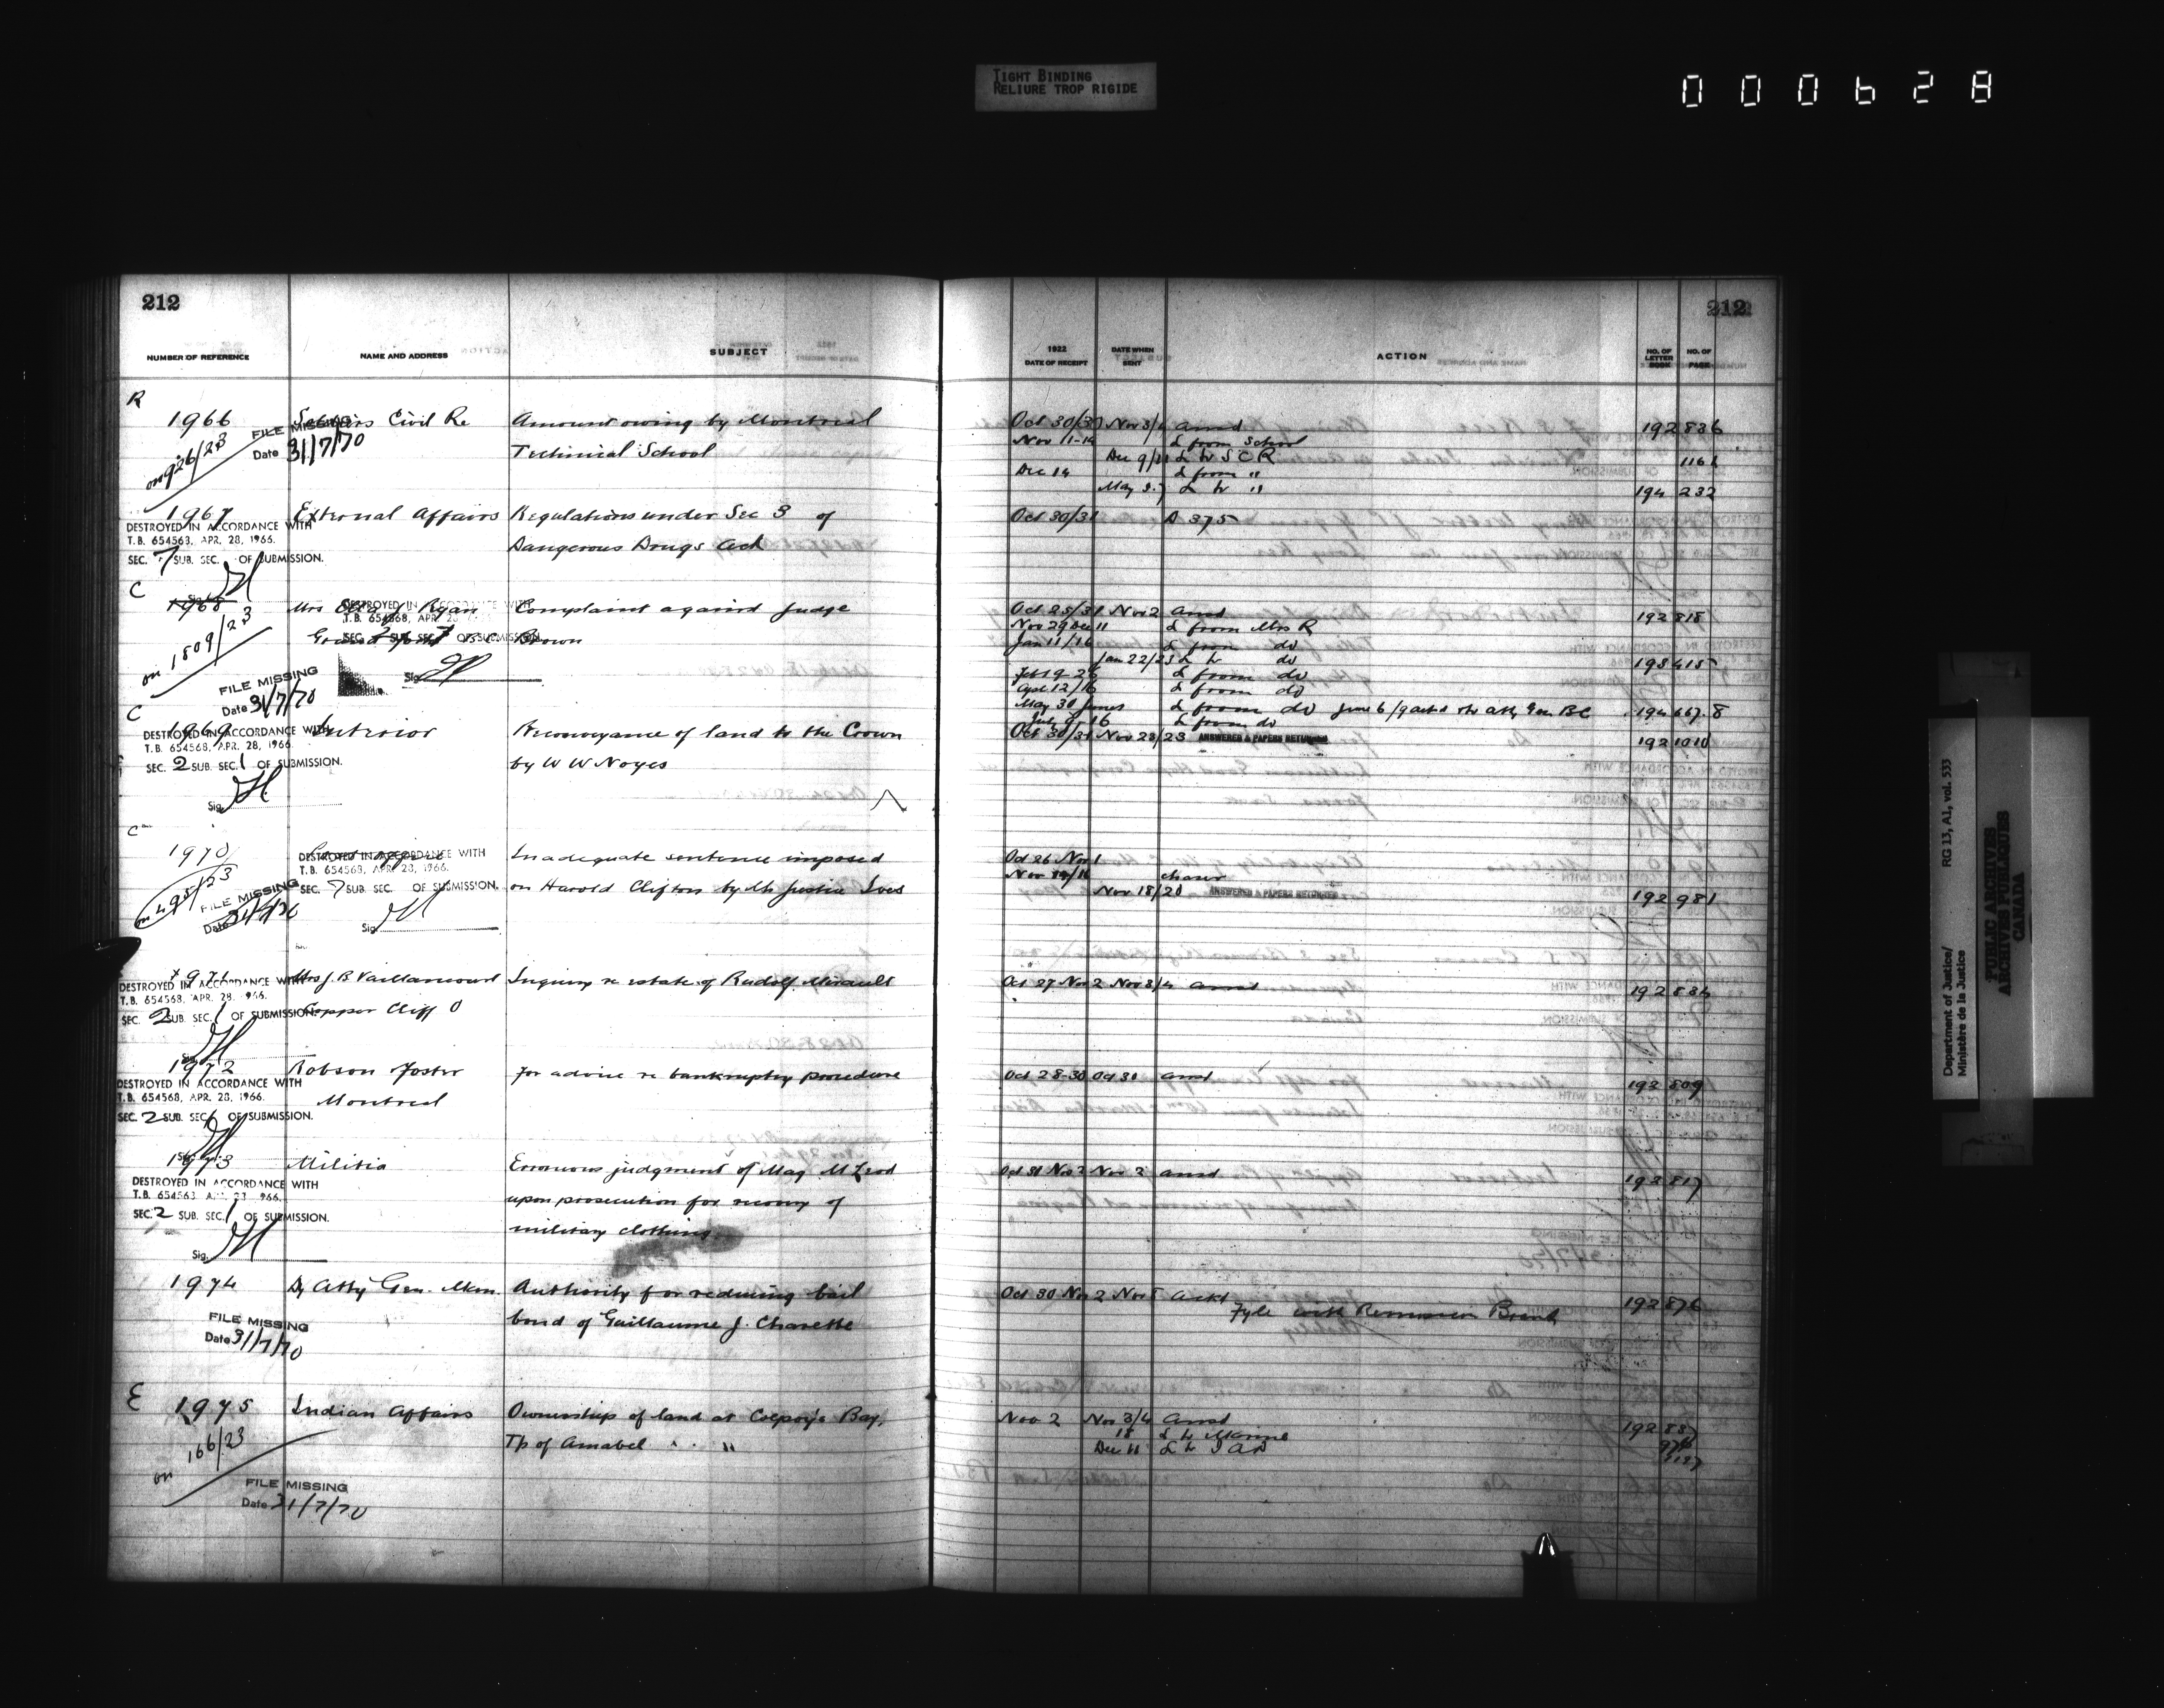 TIGHT BINDING
RELIURE TROP RIGIDE
000628
212
212
NUMBER OF REFERENCE
NAME AND ADDRESS
SUBJECT
1922
DATE OF RECEIPT
DATE WHEN SENT
ACTION
NO. OF LETTER BOOK
NO. OF PAGE
R
1966 Civil Re Amount owing by Montreal Oct 30/31 Nov 3/4 ansd 192 836
FILE MISSING
Date 31/7/70
on 926/23
Technical School
Nov 11-14 L from School
Dec 9/11 L to S C R 1161
Dec 14 L from "
May 3-7 L to " 194 232
1967 External Affairs Regulations under Sec 3 of Oct 30/31 D 375
Dangerous Drugs Act
DESTROYED IN ACCORDANCE WITH
T.B. 654563, APR. 28, 1966.
SEC. 7 SUB. SEC. OF SUBMISSION.
C
1968 Mrs Ryan Complaint against Judge Oct 25/31 Nov 2 ansd 192 818
DESTROYED IN ACCORDANCE WITH
T.B. 654568, APR.
SEC. SUB. SEC. 7 OF SUBMISSION
Brown
on 1809/23
Nov 29 Dec 11 L from Mrs R
Jan 11/16 L from do
Jan 22/23 L to do 193 415
FILE MISSING
Date 31/7/70
Sig.
Feb 19-26 L from do
Apl 12/16 L from do
May 30 June 5 L from do June 6/9 ackd & to Atty Gen BC 194 667.8
July 9-16 L from do
C
1969 Interior Reconveyance of land to the Crown Oct 30/31 Nov 23/23 ANSWERED & PAPERS RETURNED 192 1010
by W W Noyes
DESTROYED IN ACCORDANCE WITH
T.B. 654568, APR. 28, 1966.
SEC. 2 SUB. SEC. 1 OF SUBMISSION.
Sig.
C
1970 Inadequate sentence imposed Oct 26 Nov 1
on Harold Clifton by Mr Justice Ives
DESTROYED IN ACCORDANCE WITH
T.B. 654568, APR. 28, 1966.
SEC. 7 SUB. SEC. OF SUBMISSION.
Sig.
on 495/23
FILE MISSING
Date
Nov 18/20 ANSWERED & PAPERS RETURNED 192 981
1971 Mrs J. B Vaillancourt Inquiry re estate of Rudolf Mirault Oct 27 Nov 2 Nov 3/4 ansd 192 834
Copper Cliff O
DESTROYED IN ACCORDANCE WITH
T.B. 654568, APR. 28, 1966.
SEC. 2 SUB. SEC. 1 OF SUBMISSION.
Sig.
1972 Robson Foster For advice re bankruptcy procedure Oct 28-30 Oct 31 ansd 192 809
Montreal
DESTROYED IN ACCORDANCE WITH
T.B. 654568, APR. 28, 1966.
SEC. 2 SUB. SEC. 6 OF SUBMISSION.
Sig.
1973 Militia Erroneous judgment of Mag McLeod Oct 31 Nov 2 Nov 2 ansd 192 817
upon prosecution for recovery of
military clothing
DESTROYED IN ACCORDANCE WITH
SEC. 2 SUB. SEC. 1 OF SUBMISSION.
Sig.
1974 Dy Atty Gen. Man. Authority for reducing bail Oct 30 Nov 2 Nov 5 ackd 192 876
Fyle with Remission Branch
bond of Guillaume J. Charette
FILE MISSING
Date 31/7/70
E
1975 Indian Affairs Ownership of land at Colpoy's Bay, Nov 2 Nov 3/4 ansd 192 837
Tp of Amabel " "
18 L to Marine
Dec 11 L to I A D
on 166/23
FILE MISSING
Date 31/7/70
Department of Justice/
Ministère de la Justice
RG 13, A1, vol. 533
PUBLIC ARCHIVES
ARCHIVES PUBLIQUES
CANADA